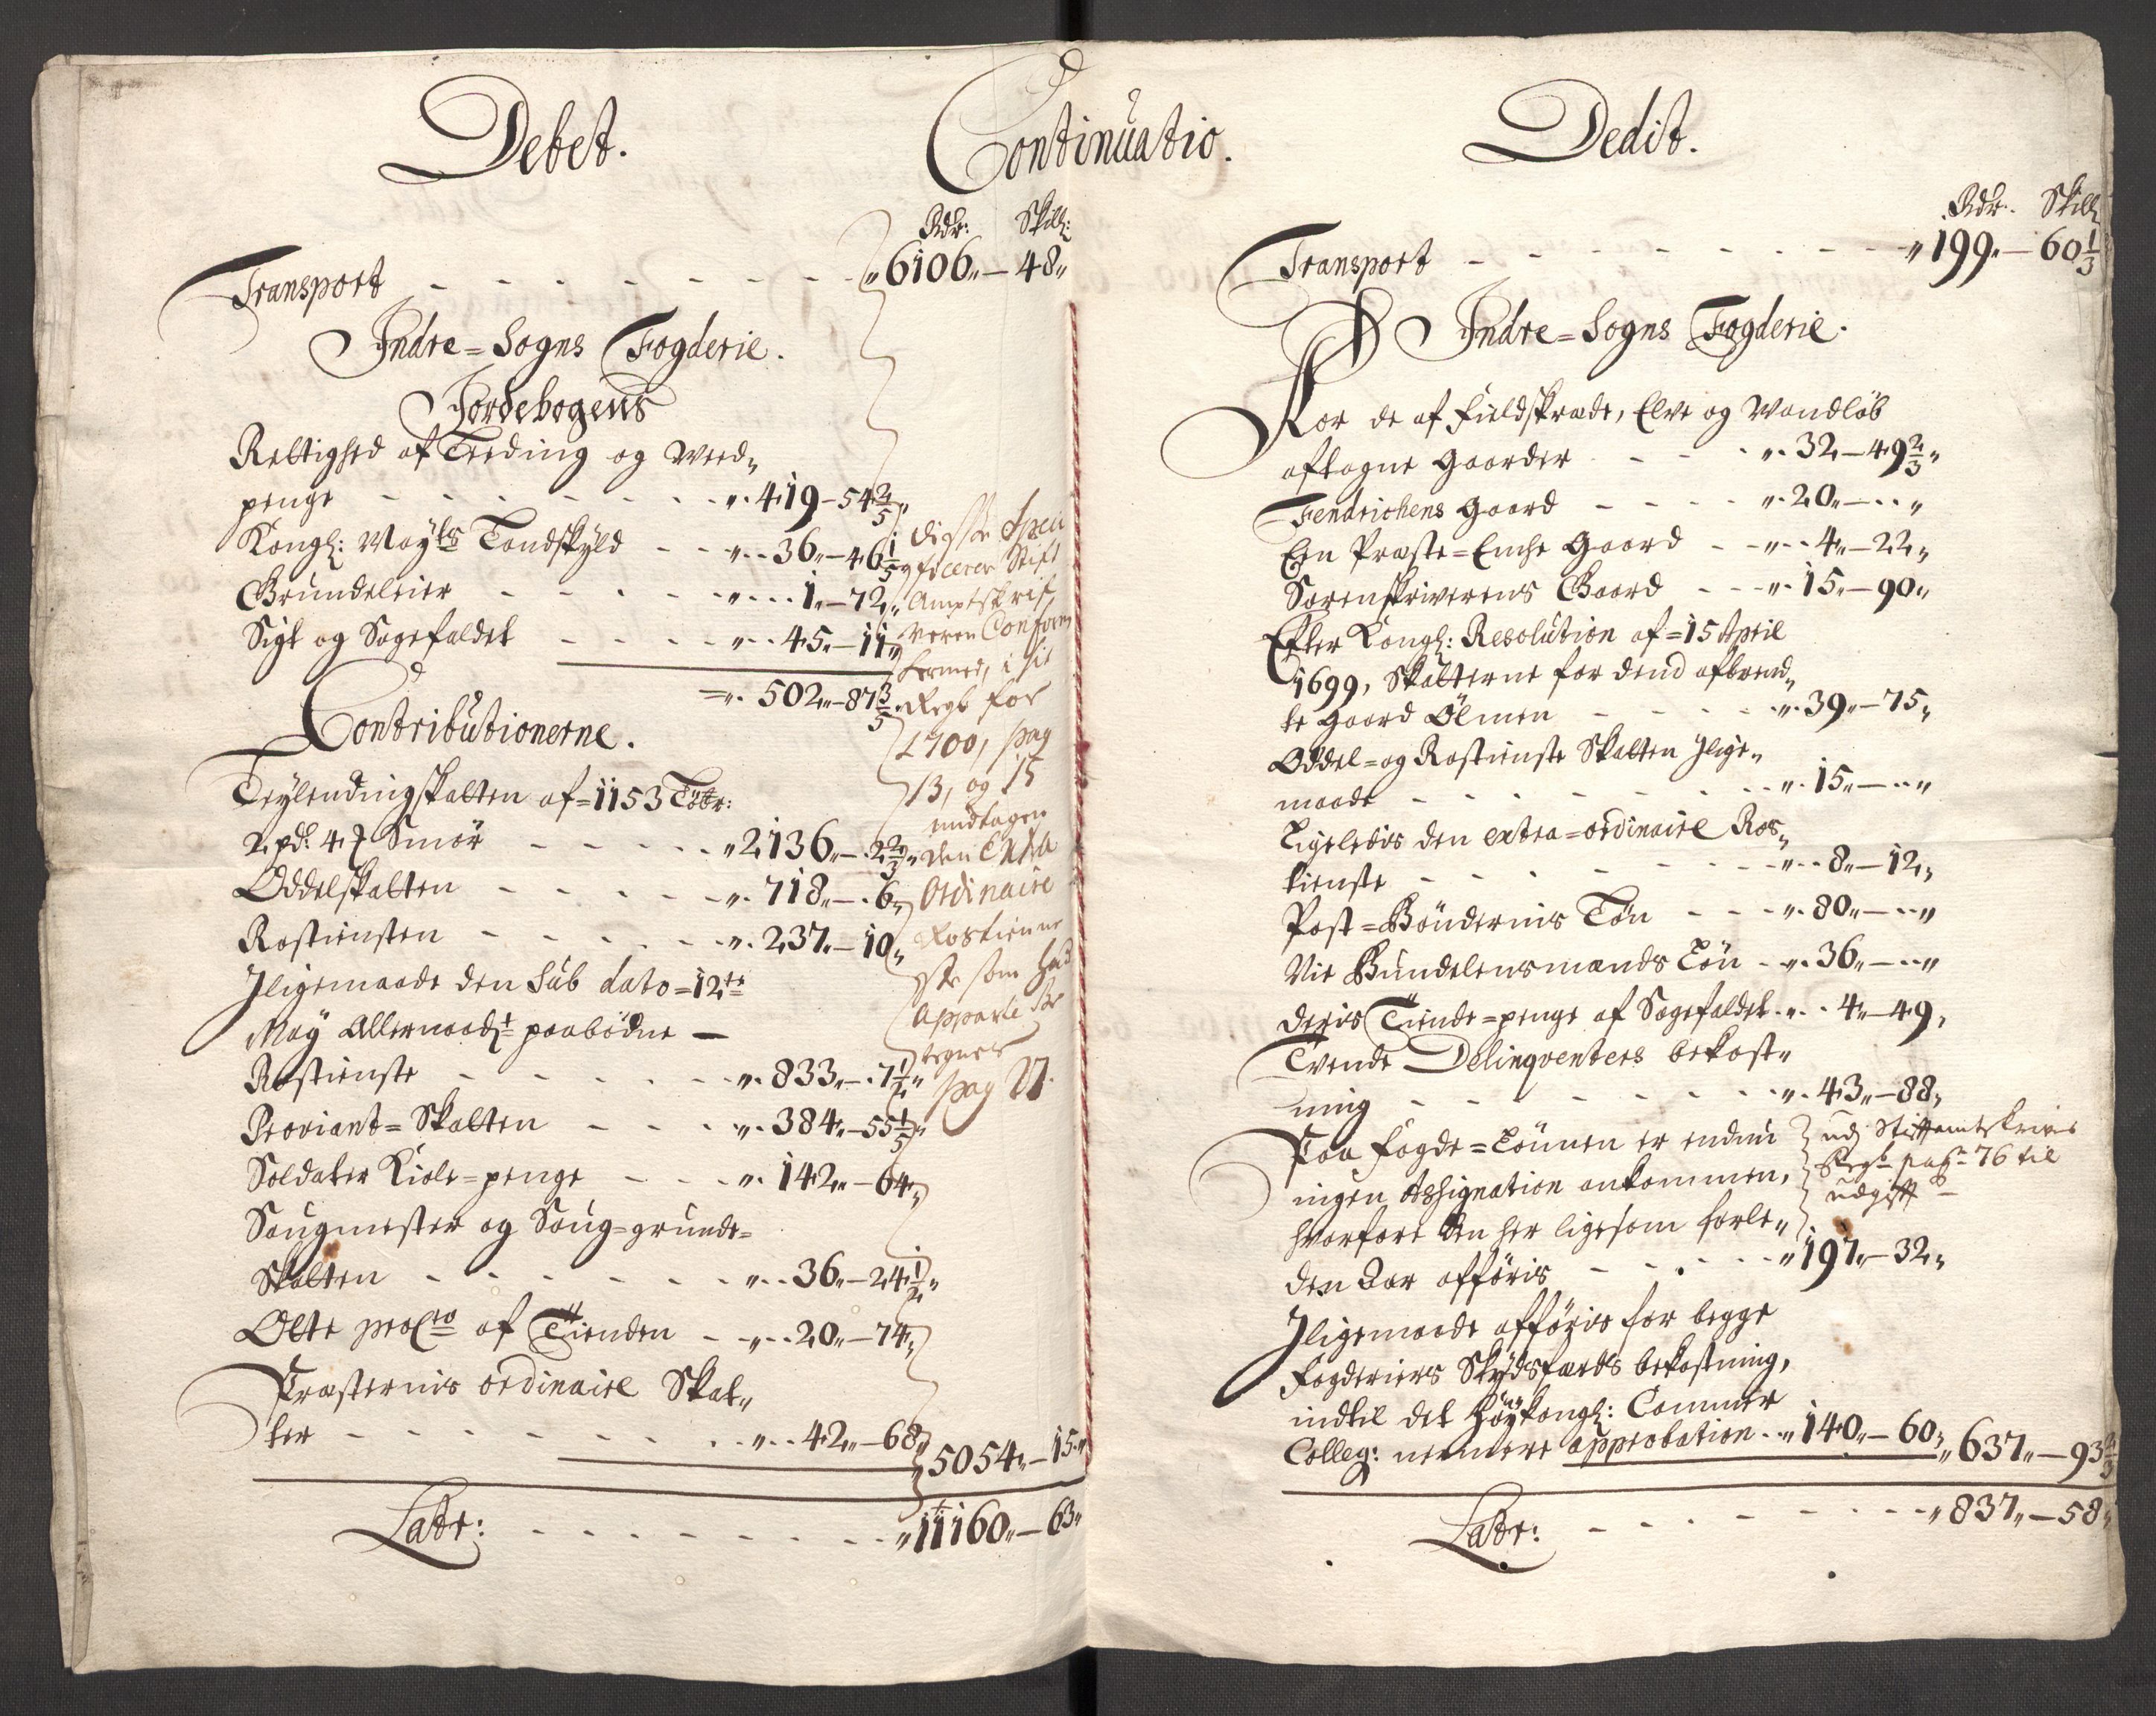 Debet. Continuatio.
Rdr: Skill:
Transport - - - - - - - „6106„-48„
Indre=Sogns Fogderie.
Jordebogens
Rettighed af Leeding og Weed„
penge - - - - - - „419-54 2/5„
Kongl: Maÿts Landskÿld - - „36„-46 1/5„
Grundeleier - - - - „1„-72„
Sigt og Sagefaldet - - - - „45„-11„
„502„-87 3/5„
Contributionerne.
Leÿlendingskatten af=1153 Löbr:
2 pd: 4 Smör - - - - - „2136„-2 2/3„
Oddelskatten - - - - - „718„-6„
Rostiensten - - - - - „237„-10„
Iligemaade den Sub dato=12te
Maÿ Allernaadt paabödne -
Rostienste - - - - - „833„-7 1/2„
Proviant=Skatten - - - „384„-55 1/5„
Soldater Kiole=penge - - - „142„-64„
Saugmester og Saug=grunde=
Skatten - - - - - - „36„-24 1/2„
Otte proCto af Tienden - - „20„-74„
Præsternis ordinaire Skat„
ter - - - - - - - „42„-68„ „5054„-15„
Latr: - - - - - - - „11160„-63„
disse Speci
ficerer Stift
Amptskrif
veren Conform
hermed, i sit
Regb for
1700, pag
13, og 15
undtagen
den Extra
Ordinaire
Rostienne
ste som hand
Apparte
tegner
pag 27.
Dedit.
Rdr. Skill
Transport - - - - - - - „199„-60 1/3
Indre=Sogns Fogderie.
For de af Fieldskrede, Elve og Vandlöb
aftagne Gaarder - - - „32-49 2/3„
Fendrichens Gaard - - - - „20„-„
Een Præste=Enche Gaard - - „4„-22„
Sorenskriverens Gaard - - - „15„-90„
Efter Kongl: Resolution af=15 April
1699, Skatterne for dend afbrend„
te Gaard Ölmen - - - - „39„-75„
Oddel=og Rostienste Skatten Ilige„
maade - - - - - - - „15„-„
Ligeledis den extra=ordinaire Ros„
tienste - - - - - - „8„-12„
Post=Böndernis Lön - - - „80„-„
Vie Bundelensmands Lön - „36„-„
Deris Tiende=penge af Sagefaldet „4„-49„
Tvende Delinqventers bekost„
ning - - - - - - - „43„-88„
Paa Fogde=Lönnen er endnu
ingen Assignation ankommen,
hvorfore den her ligesom forle„
den Aar afföris - - - - „197„-32„
udj Stiftamtskrives
Regb pag: 76 til
udgift
Iligemaade afföris for begge
Fogderiers Skÿdsfærds bekostning,
indtil det Höÿkongl: Cammer
Colleg: nermere approbation „140„-60„ „637„-93 2/3
Latr: - - - - - - - „837„-58„